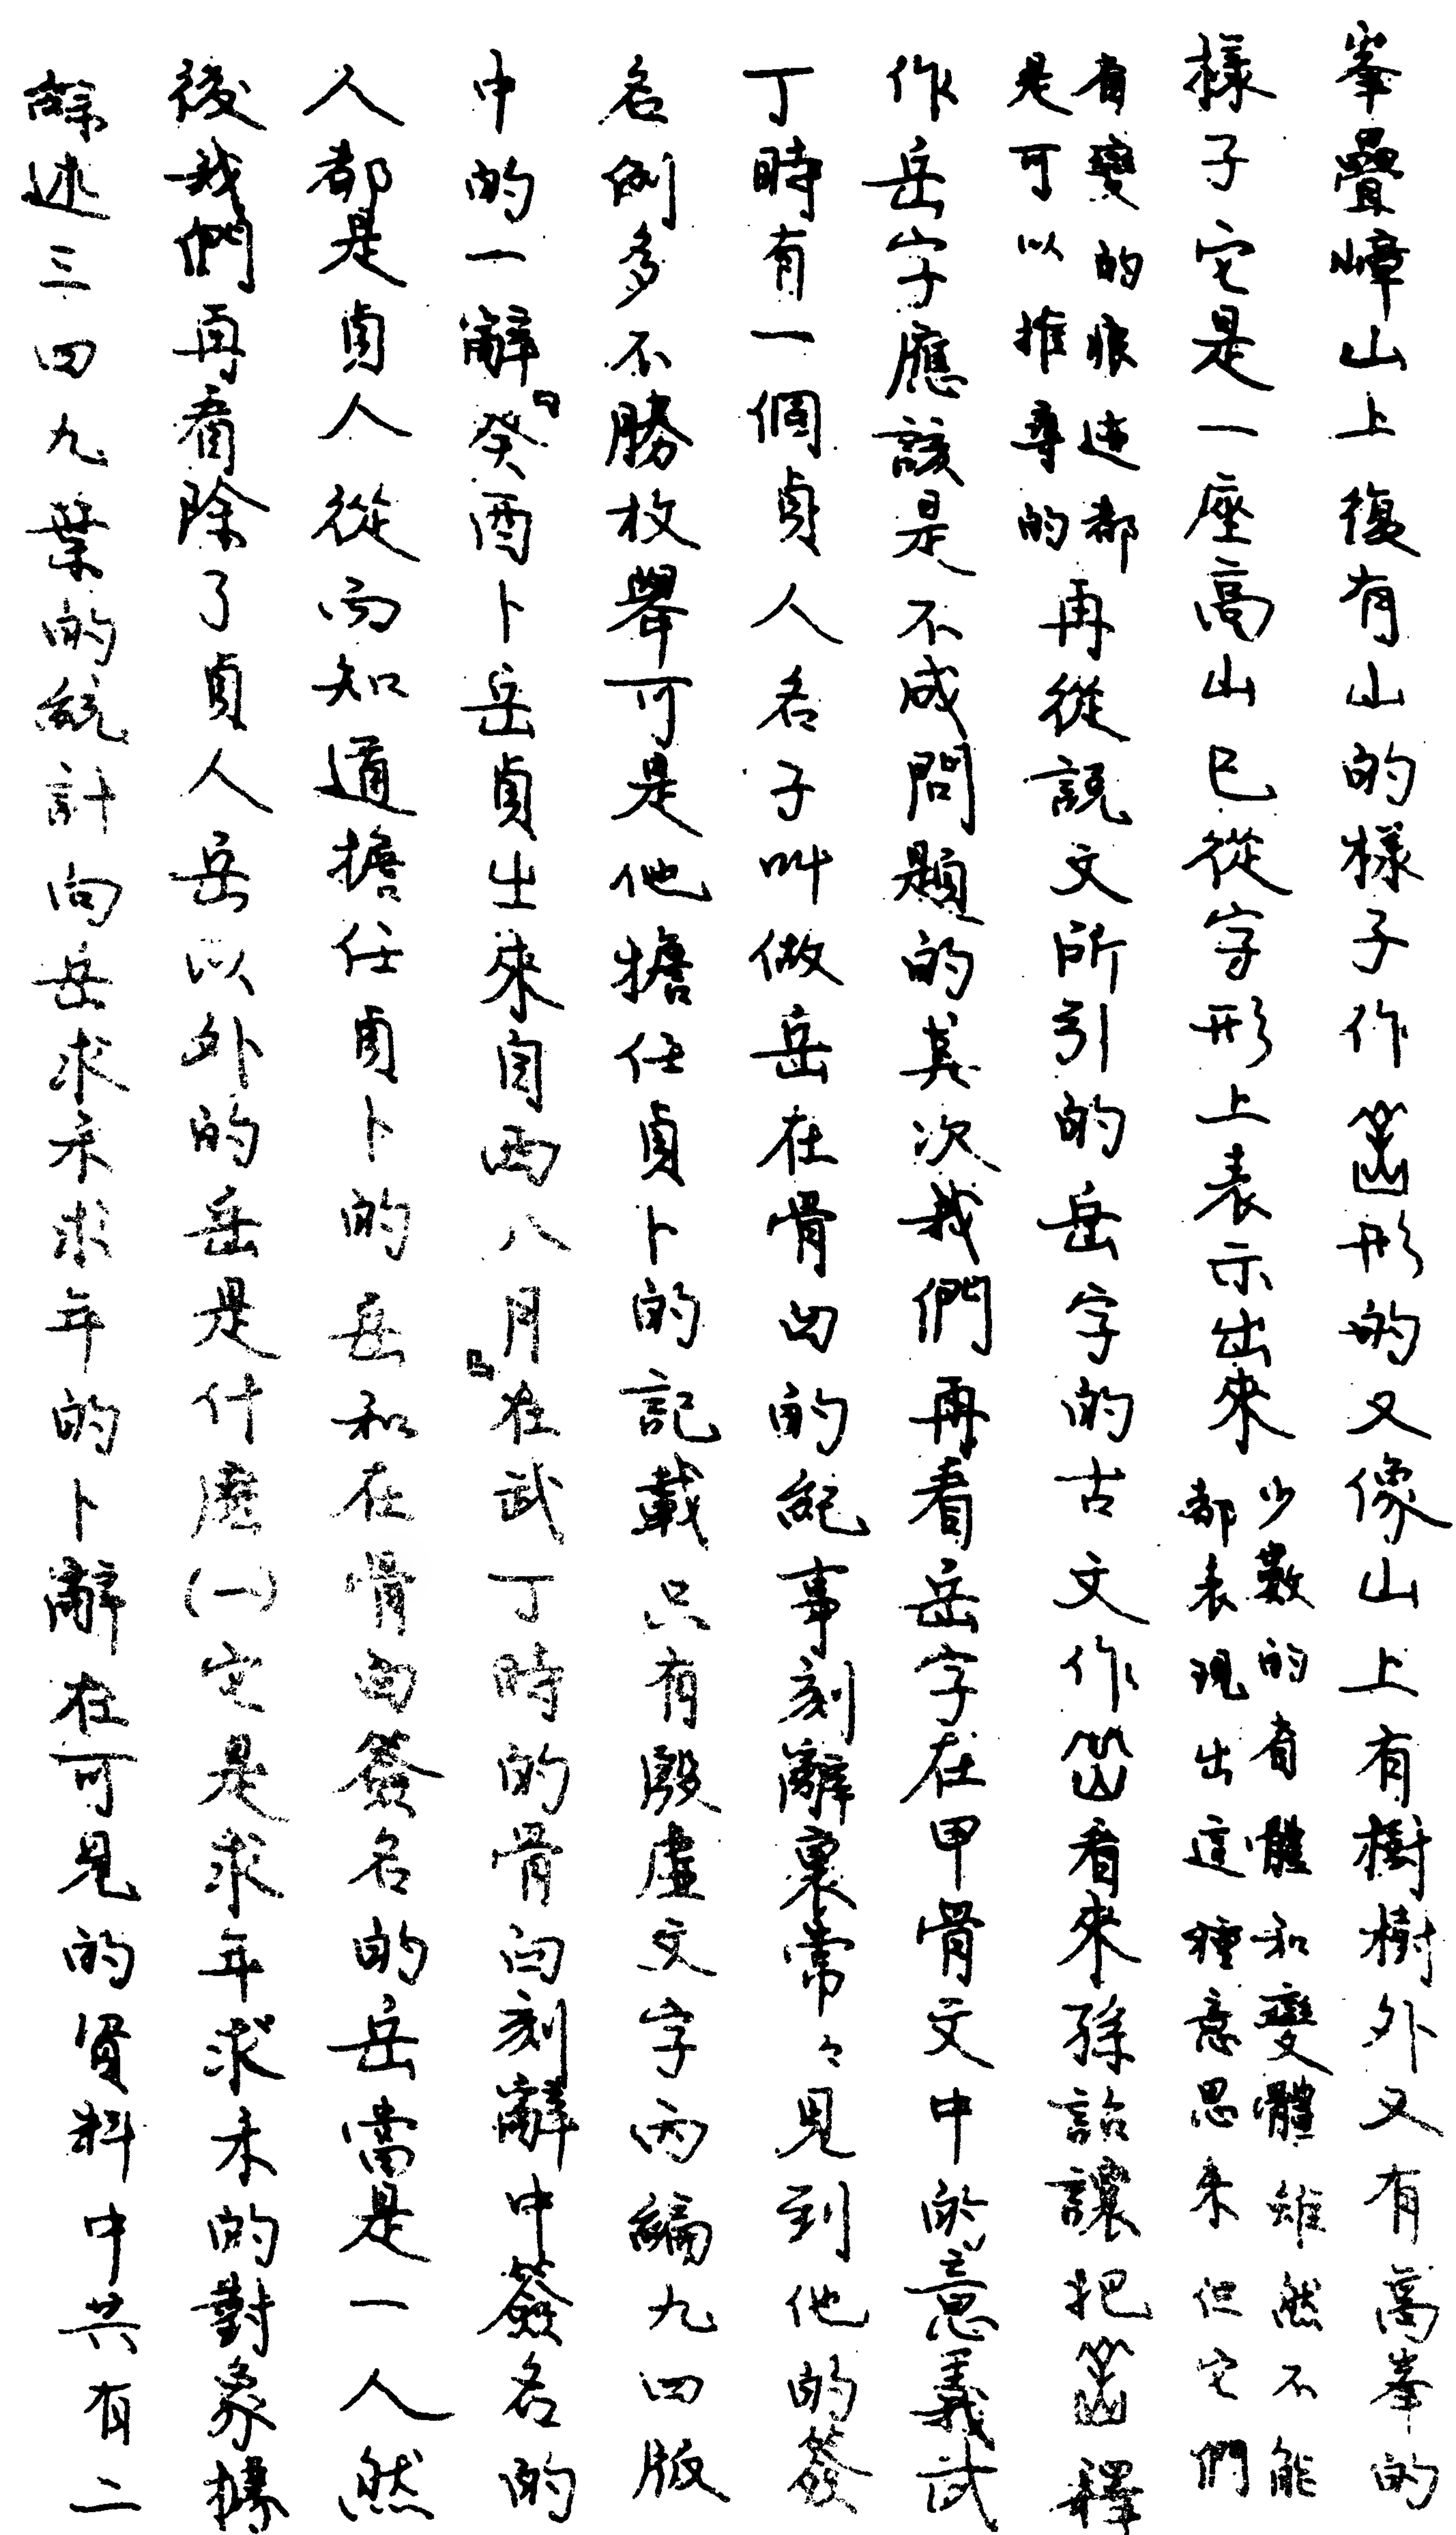 峯疊嶂山上復有山的樣子作形的又像山上有樹樹外又有高峯的
樣子它是一座高山已從字形上表示出來
少數的省體和變體雖然不能
都表現出這種意思來但它們
有變的痕迹都
是可以推尋的
再從說文所引的岳字的古文作看來孫詒讓把釋
作岳字應該是不成問題的其次我們再看岳字在甲骨文中的意義武
丁時有一個貞人名子叫做岳在骨臼的紀事刻辭裏常々見到他的簽
名例多不勝枚舉可是他擔任貞卜的記載只有殷虛文字丙編九四版
中的一辭『癸酉卜岳貞出來自西八月』在武丁時的骨臼刻辭中簽名的
人都是貞人從而知道擔任貞卜的岳和在骨臼簽名的岳當是一人然
後我們再看除了貞人岳以外的岳是什麼(一)它是求年求禾的對象據
綜述三四九葉的統計向岳求禾求年的卜辭在可見的資料中共有二